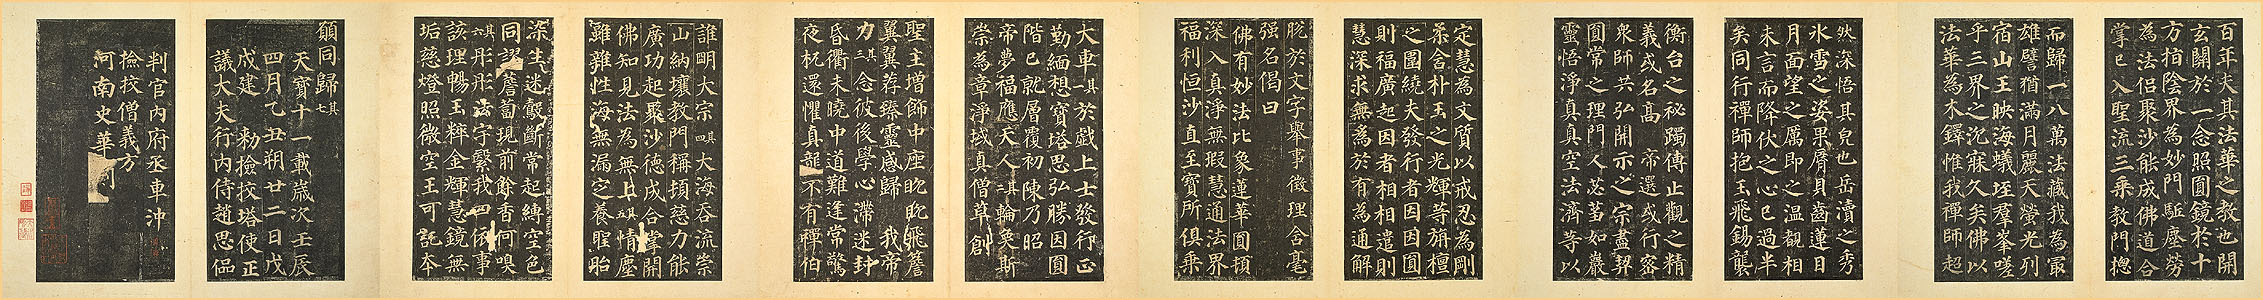 百年夫其法華之教也開
玄關於一念照圓鏡於十
方指陰界為妙門駈塵勞
為法侶聚沙能成佛道合
掌已入聖流三乘教門揔
而歸一八萬法藏我為冣
雄譬猶滿月麗天螢光列
宿山王映海蟻垤羣峯嗟
乎三界之沉寐久矣佛以
法華為木鐸惟我禪師超
然深悟其皃也岳瀆之秀
冰雪之姿果脣貝齒蓮目
月面望之厲即之溫覩相
未言而降伏之心已過半
矣同行禪師抱玉飛錫襲
衡台之秘躅傳止觀之精
義或名高 帝選或行密
衆師共弘開示之宗盡契
圓常之理門人苾芻如巖
靈悟淨真真空法濟等以
定慧為文質以戒忍為剛
柔含朴玉之光輝等旃檀
之圍繞夫發行者因因圓
則福廣起因者相相遣則
慧深求無為於有為通解
脫於文字舉事徵理含毫
强名偈曰
佛有妙法比象蓮華圓頓
深入真淨無瑕慧通法界
福利恒沙直至寶所俱乘
大車其一於戲上士發行正
勤緬想寶塔思弘勝因圓
階已就層覆初陳乃昭
帝夢福應天人其二輪奐斯
崇為章淨域真僧草創
聖主增飾中座眈眈飛簷
翼翼荐臻靈感歸我帝
力其三念彼後學心滯迷封
昏衢未曉中道難逢常驚
夜杌還懼真龍不有禪伯
誰明大宗其四大海吞流崇
山納壤教門稱頓慈力能
廣功起聚沙德成合掌開
佛知見法為無上其五情塵
雖雜性海無漏定養聖胎
染生迷鷇斷常起縛空色
同謬薝蔔現前餘香何嗅
其六彤彤法宇繫我四依事
該理暢玉粹金輝慧鏡無
垢慈燈照微空王可託本
願同歸其七
天寶十一載歲次壬辰
四月乙丑朔廿二日戊
戌建 勑撿挍塔使正
議大夫行內侍趙思侃
判官內府丞車沖
撿挍僧義方
河南史華刻